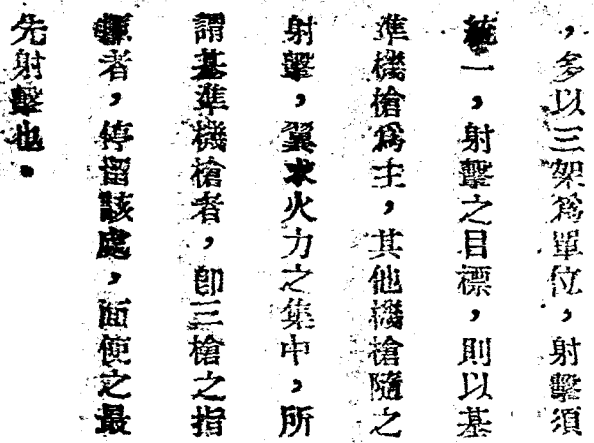 ，多以三架為單位，射擊須
統一，射擊之目標，則以基
準機槍爲主，其他機槍隨之
射擊，翼求火力之集中，所
謂基準機槍者，卽三槍之指
揮者，停留該處，面使之最
先射擊也。